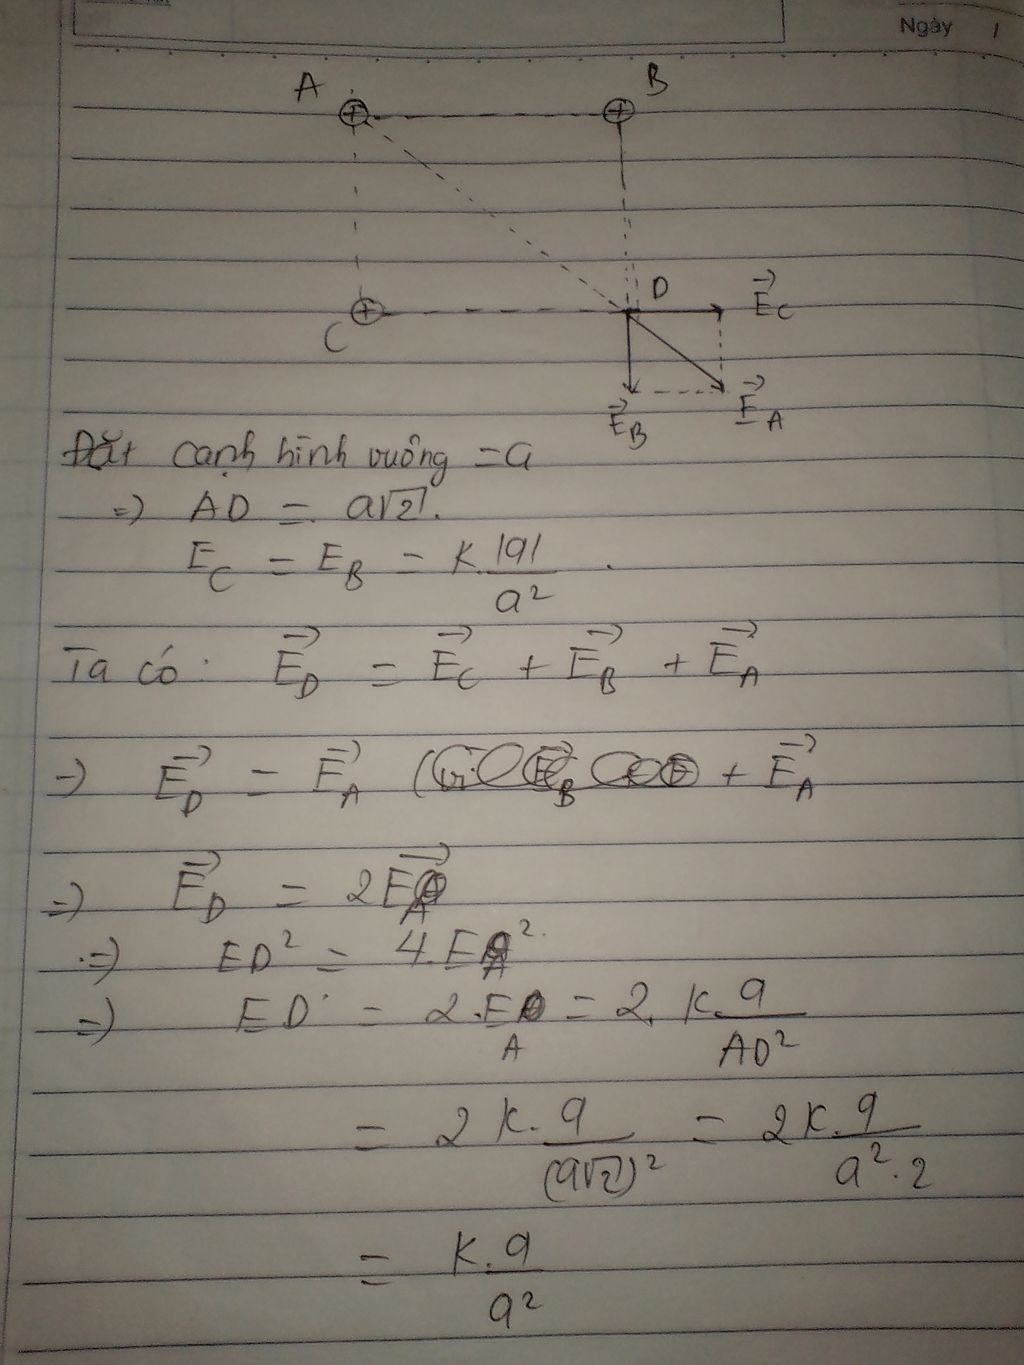 Ngày /
A B
D \vec{E_C}
C
\vec{E_B} \vec{E_A}
Đặt cạnh hình vuông = a
=> AD = a√2.
E_C = E_B = k.|q|/a².
Ta có: \vec{E_D} = \vec{E_C} + \vec{E_B} + \vec{E_A}
=> \vec{E_D} = \vec{E_A} + \vec{E_A}
=> \vec{E_D} = 2\vec{E_A}
=> ED² = 4.E_A²
=> ED = 2.E_A = 2.k.q/AD²
= 2k.q/(a√2)² = 2k.q/a².2
= k.q/a²